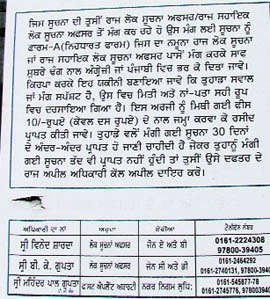 ਜਿਸ ਸੂਚਨਾ ਦੀ ਤੁਸੀਂ ਰਾਜ ਲੋਕ ਸੂਚਨਾ ਅਫਸਰ/ਰਾਜ ਸਹਾਇਕ
ਲੋਕ ਸੂਚਨਾ ਅਫਸਰ ਤੋਂ ਮੰਗ ਕਰ ਰਹੇ ਹੋ ਉਸ ਮੰਗ ਲਈ ਸੂਚਨਾ ਨੂੰ
ਫਾਰਮ-A(ਨਿਰਧਾਰਤ ਫਾਰਮ) ਜਿਸ ਦਾ ਨਮੂਨਾ ਰਾਜ ਲੋਕ ਸੂਚਨਾ
ਜਾਂ ਰਾਜ ਸਹਾਇਕ ਲੋਕ ਸੂਚਨਾ ਅਫਸਰ ਪਾਸੋਂ ਮੰਗ ਕਰਕੇ ਸਾਫ
ਸੁਥਰੇ ਢੰਗ ਨਾਲ ਅੰਗ੍ਰੇਜ਼ੀ ਜਾਂ ਪੰਜਾਬੀ ਵਿਚ ਭਰ ਕੇ ਦਿਤਾ ਜਾਵੇ।
ਕਿਰਪਾ ਕਰਕੇ ਇਹ ਯਕੀਨੀ ਬਣਾਇਆ ਜਾਵੇ ਕਿ ਤੁਹਾਡਾ ਸਵਾਲ
ਜਾਂ ਮੰਗ ਸਪਸ਼ਟ ਹੈ, ਉਸ ਵਿਚ ਮਿਤੀ ਅਤੇ ਨਾਂ-ਪਤਾ ਸਹੀ ਰੂਪ
ਵਿਚ ਦਰਸਾਇਆ ਗਿਆ ਹੈ। ਇਸ ਅਰਜੀ ਨੂੰ ਮਿਥੀ ਗਈ ਫੀਸ
10/-ਰੁਪਏ (ਕੇਵਲ ਦਸ ਰੁਪਏ) ਦੇ ਨਾਲ ਜਮ੍ਹਾ ਕਰਵਾ ਕੇ ਰਸੀਦ
ਪ੍ਰਾਪਤ ਕੀਤੀ ਜਾਵੇ। ਤੁਹਾਡੇ ਵਲੋਂ ਮੰਗੀ ਗਈ ਸੂਚਨਾ 30 ਦਿਨਾਂ
ਦੇ ਅੰਦਰ-ਅੰਦਰ ਪ੍ਰਾਪਤ ਹੋ ਜਾਣੀ ਚਾਹੀਦੀ ਹੈ ਜੇਕਰ ਤੁਹਾਨੂੰ ਮੰਗੀ
ਗਈ ਸੂਚਨਾ ਤੱਦ ਵੀ ਪ੍ਰਾਪਤ ਨਹੀਂ ਹੁੰਦੀ ਤਾਂ ਤੁਸੀਂ ਉਸੇ ਦਫਤਰ ਦੇ
ਰਾਜ ਅਪੀਲ ਅਧਿਕਾਰੀ ਕੋਲ ਅਪੀਲ ਦਾਇਰ ਕਰੋ।
ਅਧਿਕਾਰੀ ਦਾ ਨਾਂ ਅਹੁਦਾ ਟੈਲੀਫੋਨ ਨੰਬਰ
ਸ੍ਰੀ ਵਿਨੋਦ ਸ਼ਾਰਦਾ ਲੋਕ ਸੂਚਨਾ ਅਫਸਰ ਜੋਨ ਏ ਅਤੇ ਬੀ 0161-2224308
97800-39405
ਸ੍ਰੀ ਬੀ. ਕੇ. ਗੁਪਤਾ ਲੋਕ ਸੂਚਨਾ ਅਫਸਰ ਜੋਨ ਸੀ ਅਤੇ ਡੀ 0161-2464292
0161-2740131,
ਸ੍ਰੀ ਮਹਿੰਦਰ ਪਾਲ ਗੁਪਤਾ ਫਸਟ ਐਪੀਲੇਟ ਅਥਾਰਟੀ ਨਗਰ ਨਿਗਮ ਲੁਧਿ: 0161-545877-78
0161-2745776,